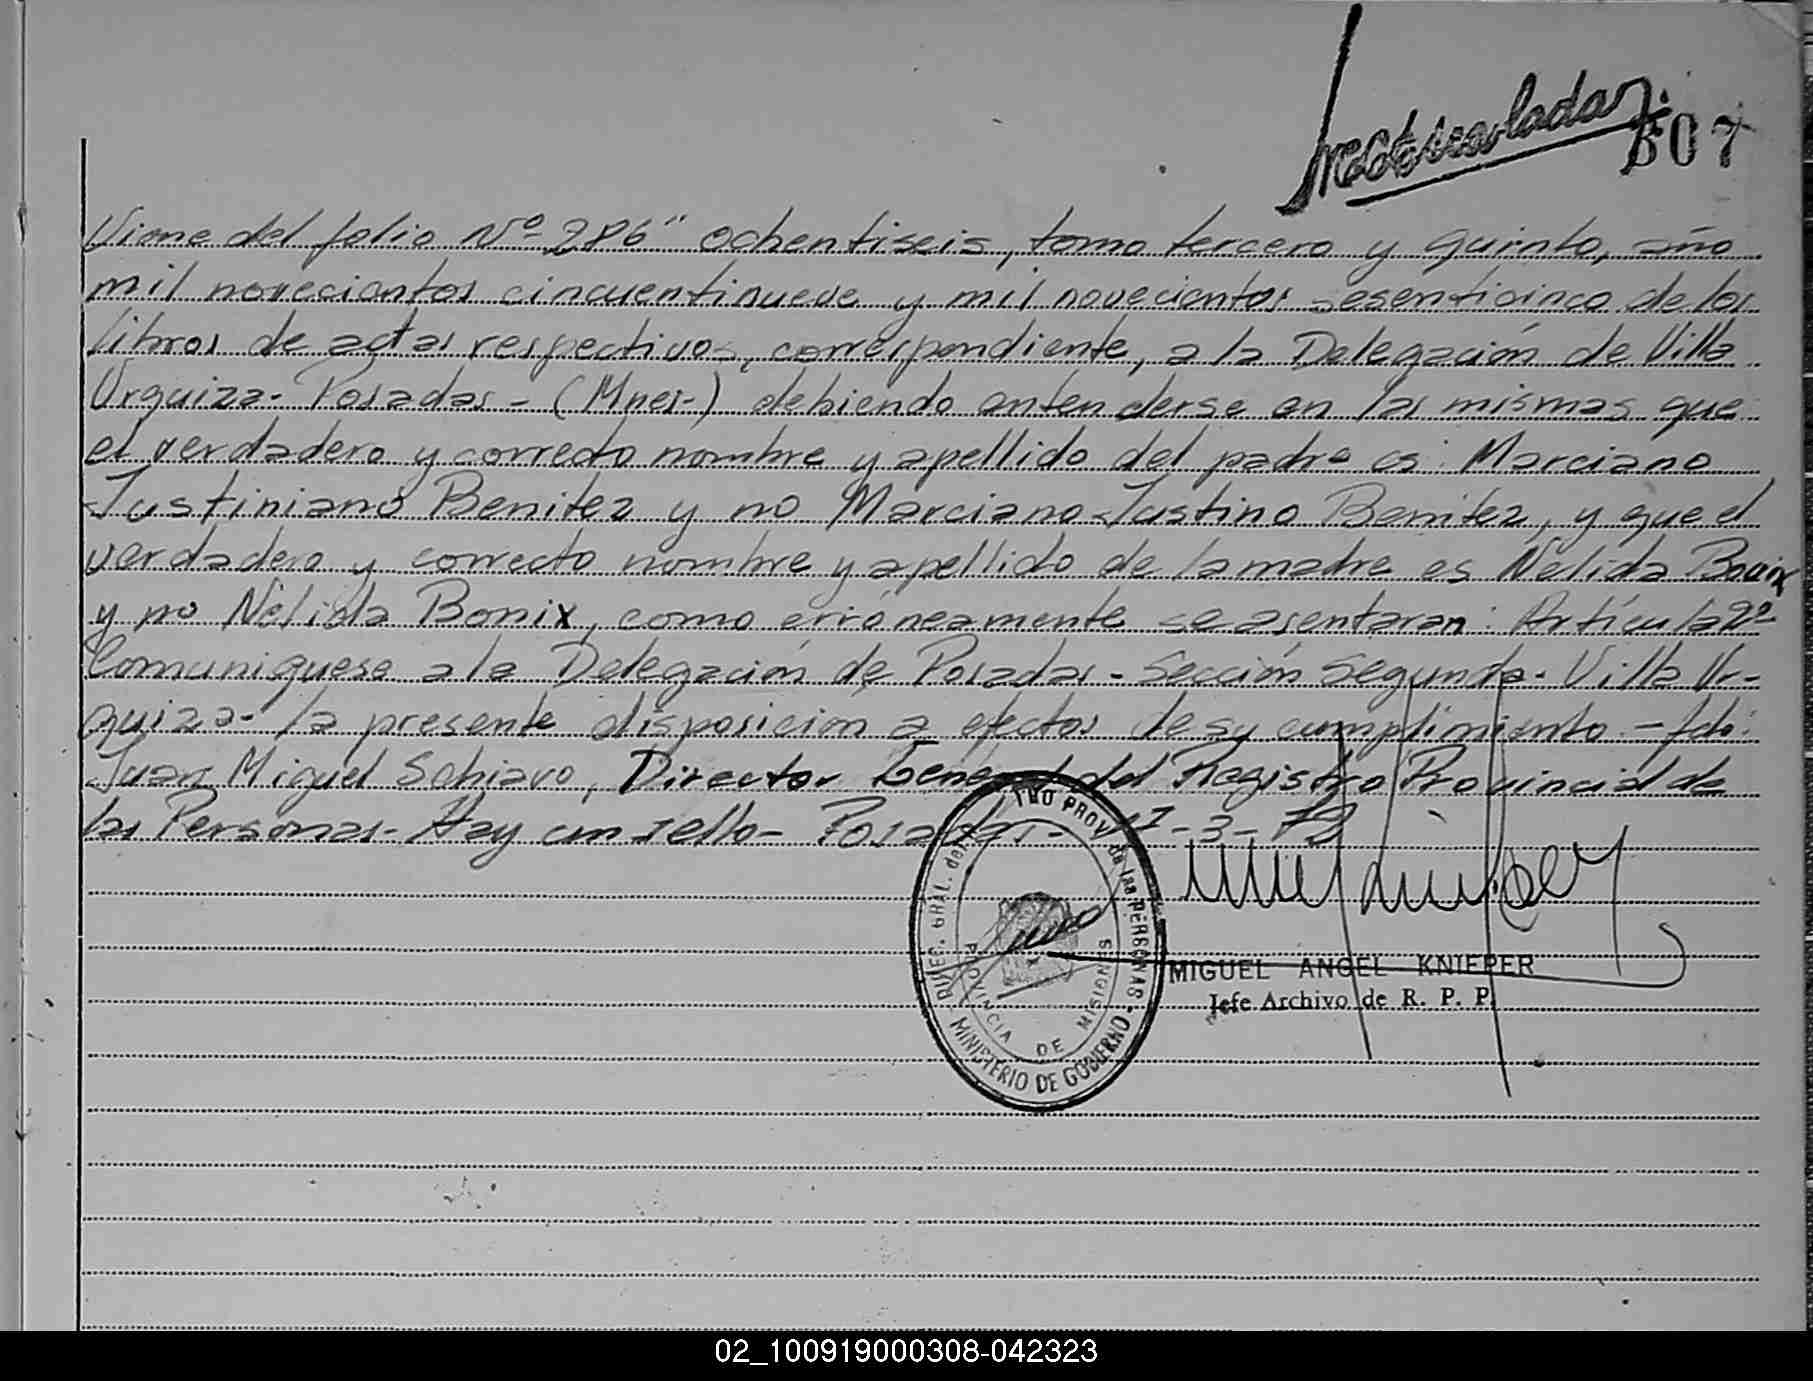 507
Viene del folio Nº 286" ochentiseis, tomo tercero y quinto, año
mil novecientos cincuentinueve y mil novecientos sesenticinco de los
libros de actas respectivos, correspondiente, a la Delegación de Villa
Urquiza- Posadas - (Mnes-) debiendo entenderse en las mismas que
el verdadero y correcto nombre y apellido del padre es: Marciano
Justiniano Benitez y no Marciano Justino Benitez, y que el
verdadero y correcto nombre y apellido de la madre es Nélida Bouix
y no Nélida Bonix, como erróneamente se asentaran: Artícula 2º
Comuniquese a la Delegación de Posadas - Sección Segunda - Villa Ur-
quiza- la presente disposicion a efectos de su cumplimiento - fdo:
Juan Miguel Schiavo, Director General del Registro Provincial de
las Personas - Hay un sello - Posadas - -3-
DIREC. GRAL. del PROV. de las PERSONAS - MINISTERIO DE GOBIERNO
PROVINCIA DE MISIONES
MIGUEL ANGEL KNIEPER
Jefe Archivo de R. P. P.
02_100919000308-042323